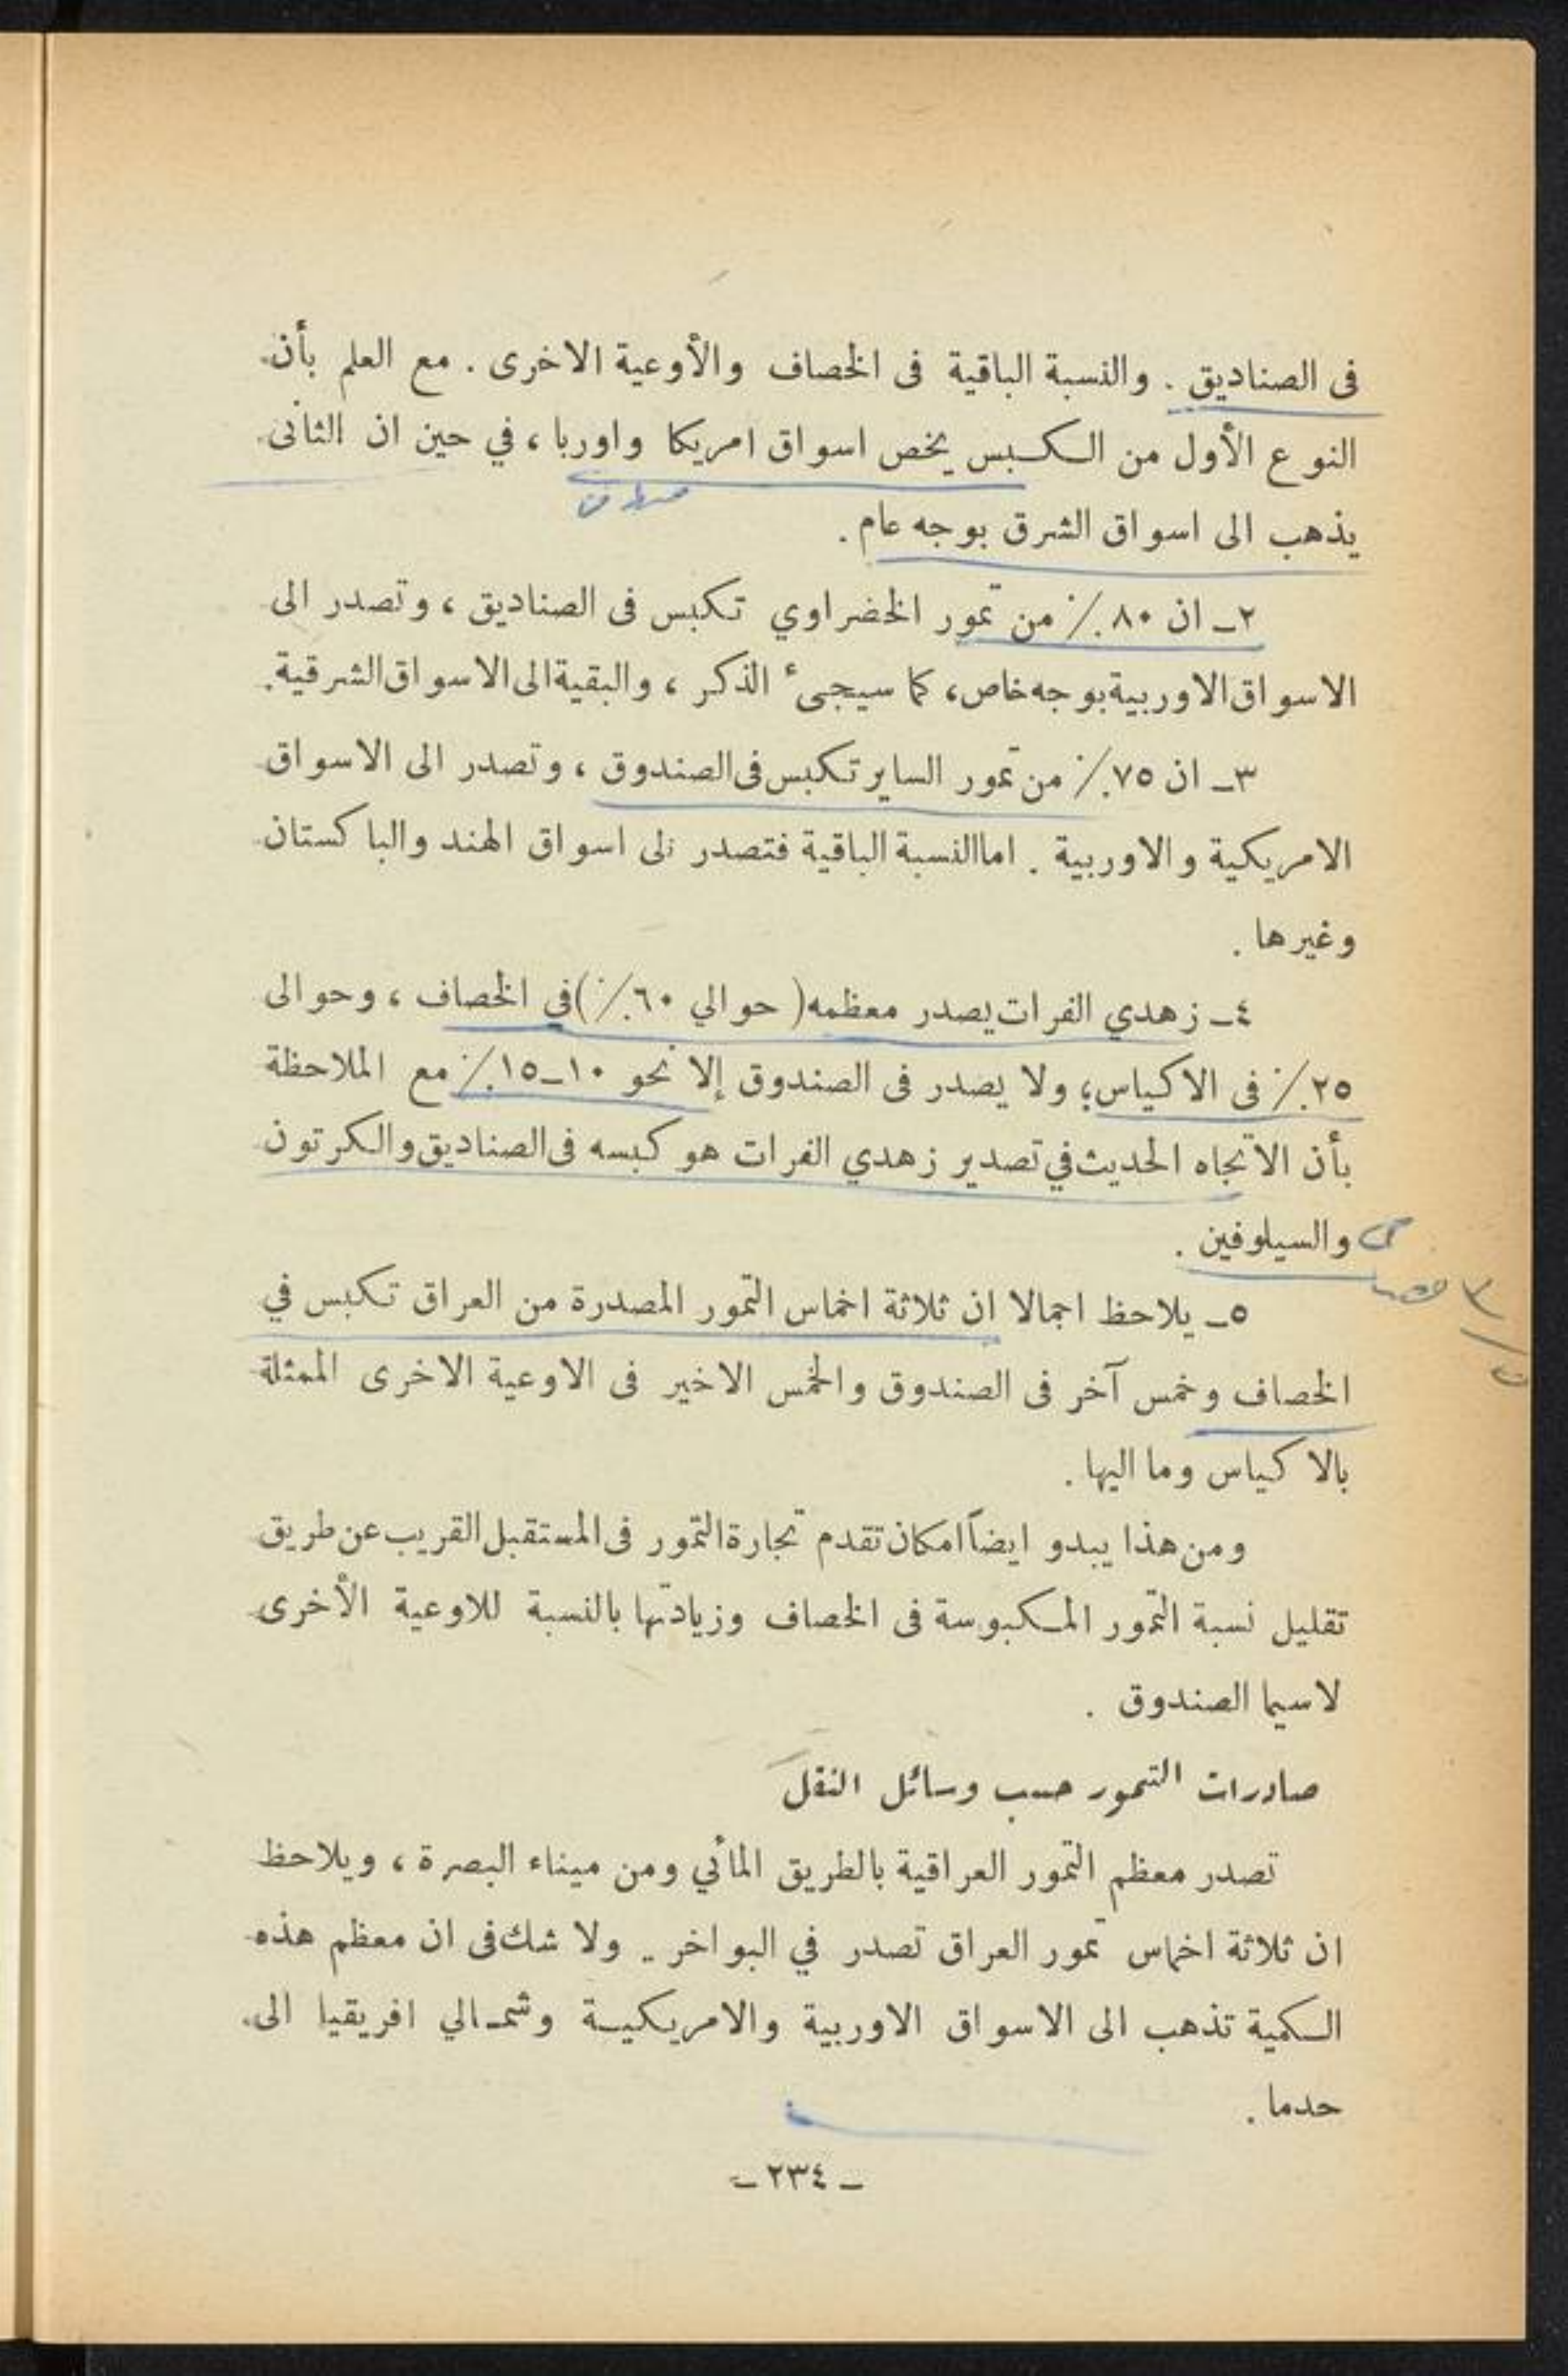 فى الصناديق . والنسبة الباقية فى الخصاف والأوعية الاخرى . مع العلم بأن
النوع الأول من الكبس يخص اسواق امريكا واوربا ، في حين ان الثانى
يذهب الى اسواق الشرق بوجه عام .
٢ـ ان ٨٠٪ من تمور الخضراوي تكبس فى الصناديق ، وتصدر الى
الاسواق الاوربية بوجه خاص، كما سيجىء الذكر ، والبقية الى الاسواق الشرقية.
٣ـ ان ٧٥٪ من تمور الساير تكبس فى الصندوق ، وتصدر الى الاسواق
الامريكية والاوربية . اما النسبة الباقية فتصدر الى اسواق الهند والباكستان
وغيرها .
٤ـ زهدي الفرات يصدر معظمه ( حوالي ٦٠٪) في الخصاف ، وحوالى
٢٥٪ فى الاكياس؛ ولا يصدر فى الصندوق إلا نحو ١٠ـ١٥٪ مع الملاحظة
بأن الاتجاه الحديث في تصدير زهدي الفرات هو كبسه فى الصناديق والكرتون
والسيلوفين .
٥ـ يلاحظ اجمالا ان ثلاثة اخماس التمور المصدرة من العراق تكبس في
الخصاف وخمس آخر فى الصندوق والخمس الاخير فى الاوعية الاخرى الممثلة
بالاكياس وما اليها .
ومن هذا يبدو ايضاً امكان تقدم تجارة التمور فى المستقبل القريب عن طريق
تقليل نسبة التمور المكبوسة فى الخصاف وزيادتها بالنسبة للاوعية الأخرى
لاسيما الصندوق .
صادرات التمور حسب وسائل النقل
تصدر معظم التمور العراقية بالطريق المائي ومن ميناء البصرة ، ويلاحظ
ان ثلاثة اخماس تمور العراق تصدر في البواخر . ولا شك فى ان معظم هذه
الكمية تذهب الى الاسواق الاوربية والامريكية وشمالي افريقيا الى
حدما .
ـ ٢٣٤ ـ